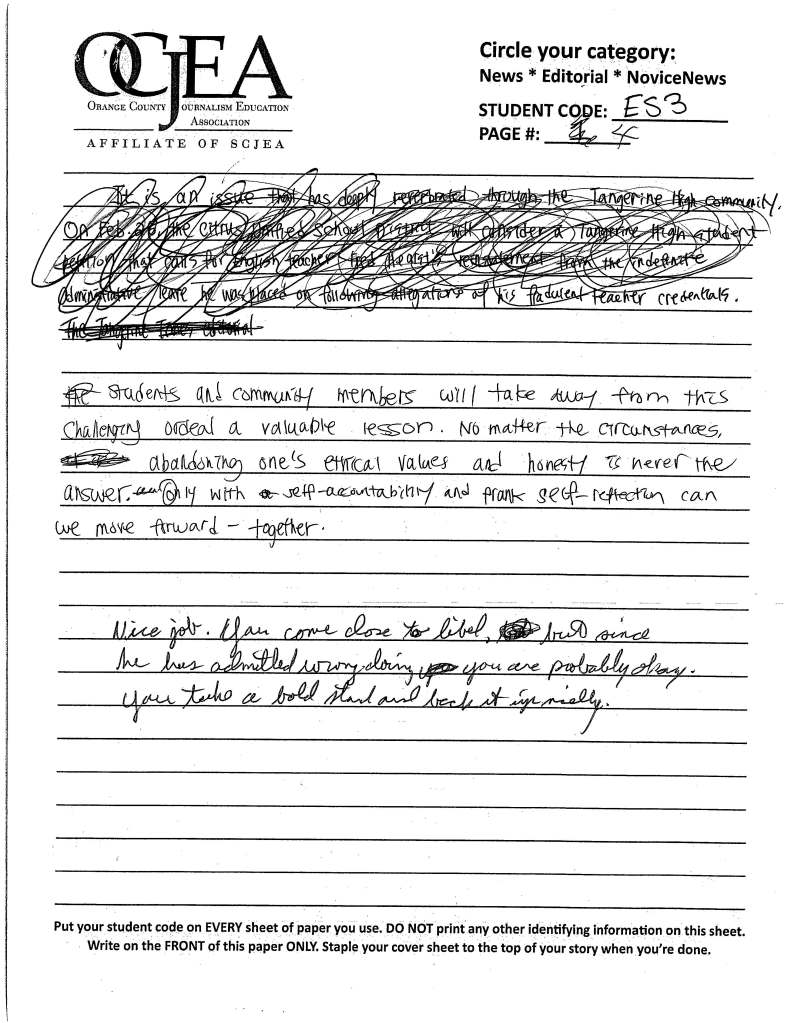 OCJEA
ORANGE COUNTY JOURNALISM EDUCATION
ASSOCIATION
AFFILIATE OF SCJEA
Circle your category:
News * Editorial * NoviceNews
STUDENT CODE: ES3
PAGE #: 4
It is an issue that has deeply reverberated through the Tangerine High community.
On Feb. 26, the Citrus Unified School District will consider a Tangerine High student
petition that calls for English teacher Fred reinstatement from the indefinite
administrative leave he was placed on following allegations of his fradulent teacher credentials.
The Tangerine Times editorial
The Students and community members will take away from this
challenging ordeal a valuable lesson. No matter the circumstances,
abandoning one's ethical values and honesty is never the
answer. Only with a self-accountability and frank self-reflection can
we move forward - together.
Nice job. You come close to libel, but since
he has admitted wrong doing you are probably okay.
You take a bold stand and back it up nicely.
Put your student code on EVERY sheet of paper you use. DO NOT print any other identifying information on this sheet.
Write on the FRONT of this paper ONLY. Staple your cover sheet to the top of your story when you're done.